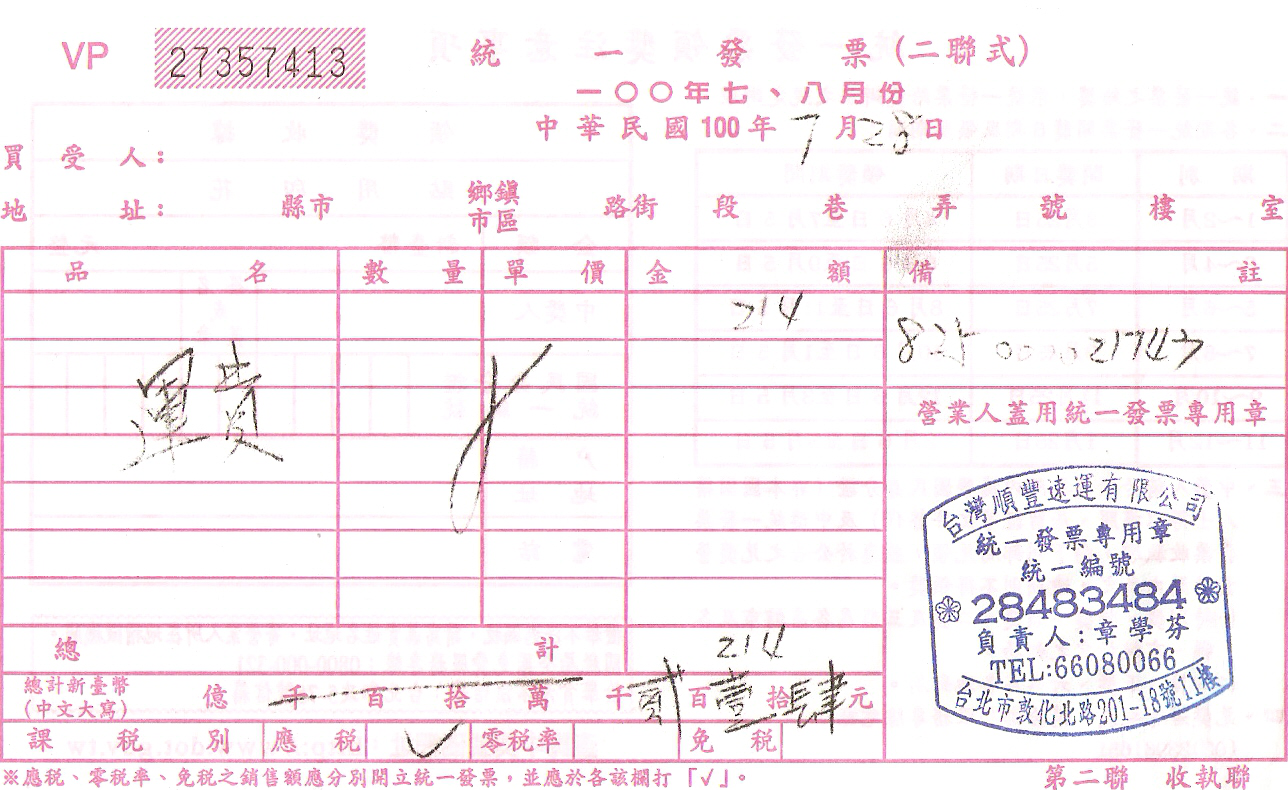 VP 27357413 統一發票(二聯式)
一〇〇年七、八月份
中華民國100年7月28日
買受人：
地址： 縣市 鄉鎮市區 路街 段 巷 弄 號 樓 室
品名 數量 單價 金額 備註
214
運費 825 000021743
營業人蓋用統一發票專用章
台灣順豐速運有限公司
統一發票專用章
統一編號
28483484
負責人:章學芬
TEL:66080066
台北市敦化北路201-18號11樓
總計 214
總計新臺幣(中文大寫) 億 千 百 拾 萬 千 貳 百 壹 拾 肆 元
課稅別 應稅 √ 零稅率 免稅
※應稅、零稅率、免稅之銷售額應分別開立統一發票，並應於各該欄打「√」。
第二聯 收執聯